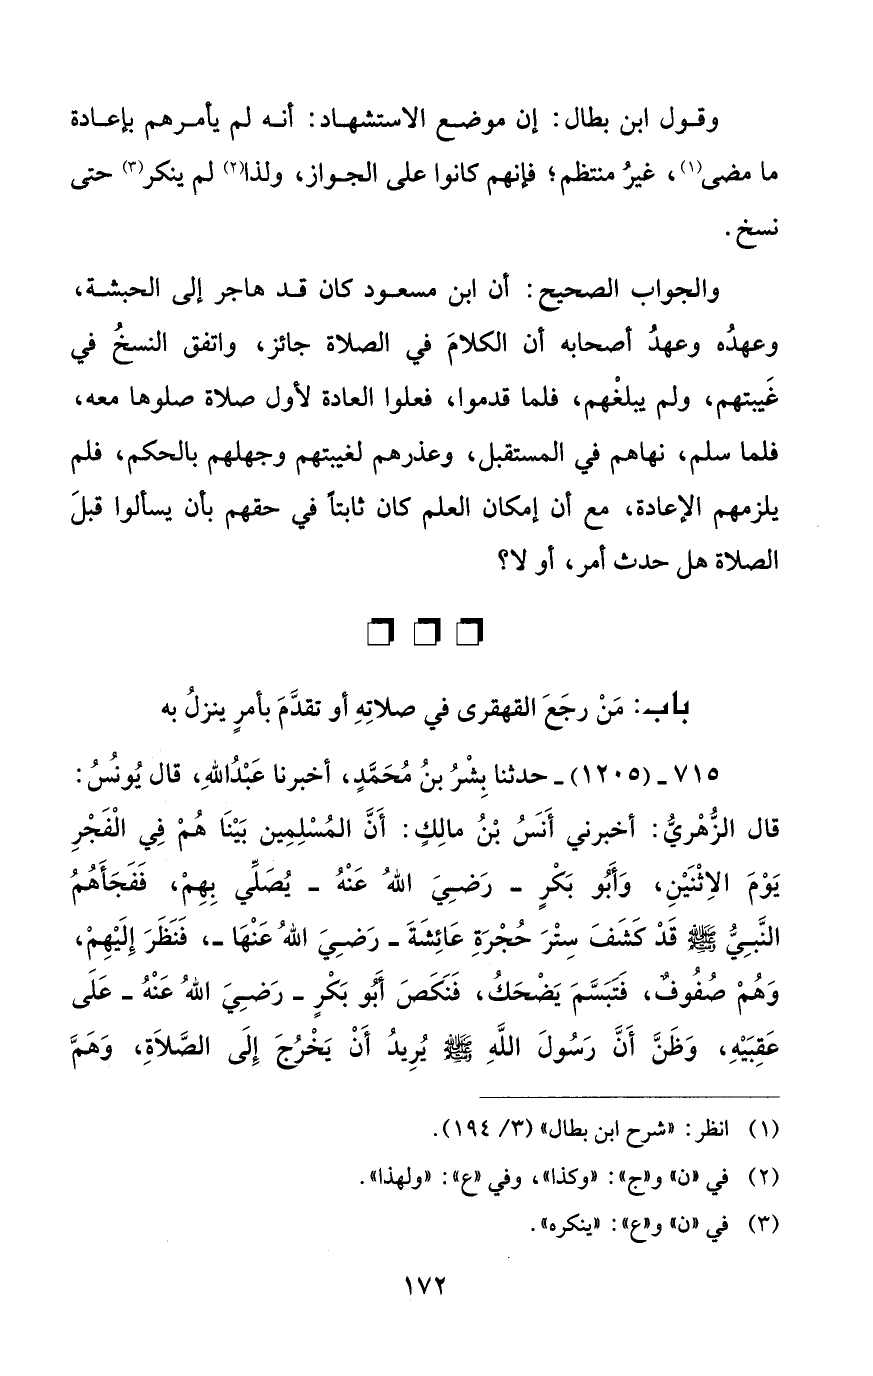 وقول ابن بطال: إن موضع الاستشهاد: أنه لم يأمرهم بإعادة
ما مضى(١)، غيرُ منتظم؛ فإنهم كانوا على الجواز، ولذا(٢) لم ينكر(٣) حتى
نسخ.
والجواب الصحيح: أن ابن مسعود كان قد هاجر إلى الحبشة،
وعهدُه وعهدُ أصحابه أن الكلامَ في الصلاة جائز، واتفق النسخُ في
غَيبتهم، ولم يبلغْهم، فلما قدموا، فعلوا العادة لأول صلاة صلوها معه،
فلما سلم، نهاهم في المستقبل، وعذرهم لغيبتهم وجهلهم بالحكم، فلم
يلزمهم الإعادة، مع أن إمكان العلم كان ثابتاً في حقهم بأن يسألوا قبلَ
الصلاة هل حدث أمر، أو لا؟
باب: مَنْ رجَعَ القهقرى في صلاتِهِ أو تقدَّمَ بأمرٍ ينزلُ به
٧١٥ ـ (١٢٠٥) ـ حدثنا بِشْرُ بنُ مُحَمَّدٍ، أخبرنا عَبْدُاللهِ، قال يُونُسُ:
قال الزُّهْرِيُّ: أخبرني أَنَسُ بْنُ مالِكٍ: أَنَّ المُسْلِمِين بَيْنَا هُمْ فِي الْفَجْرِ
يَوْمَ الِاثْنَيْنِ، وَأَبُو بَكْرٍ ـ رَضِيَ اللهُ عَنْهُ ـ يُصَلِّي بِهِمْ، فَفَجَأَهُمُ
النَّبِيُّ ﷺ قَدْ كَشَفَ سِتْرَ حُجْرَةِ عَائِشَةَ ـ رَضِيَ اللهُ عَنْهَا ـ، فَنَظَرَ إِلَيْهِمْ،
وَهُمْ صُفُوفٌ، فَتَبَسَّمَ يَضْحَكُ، فَنَكَصَ أَبُو بَكْرٍ ـ رَضِيَ اللهُ عَنْهُ ـ عَلَى
عَقِبَيْهِ، وَظَنَّ أَنَّ رَسُولَ اللَّهِ ﷺ يُرِيدُ أَنْ يَخْرُجَ إِلَى الصَّلاَةِ، وَهَمَّ
(١) انظر: «شرح ابن بطال» (٣/ ١٩٤).
(٢) في «ن» و«ج»: «وكذا»، وفي «ع»: «ولهذا».
(٣) في «ن» و«ع»: «ينكره».
١٧٢